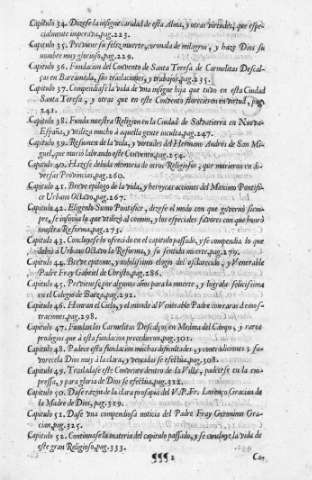 Capitulo 34. Dizese la insigne caridad de esta Alma, y otras virtudes, que espe-
cialmente imperava, pag.223.
Capitulo 35. Previene su feliz muerte, coronala de milagros, y haze Dios su
nombre muy glorioso, pag.229.
Capitulo 36. Fundacion del Convento de Santa Teresa de Carmelitas Descal-
ças en Barcelona, sus traslaciones, y trabajos, pag.235.
Capitulo 37. Compendiase la vida de una insigne hija que tuvo en esta Ciudad
Santa Teresa, y otras que en este Convento florecieron en virtud, pag.
241.
Capitulo 38. Funda nuestra Religion en la Ciudad de Salvatierra en Nueva-
España, y utiliza mucho à aquella gente inculta, pag.247.
Capitulo 39. Resumen de la vida, y virtudes del Hermano Andrès de San Mi-
guel, que murió labrando este Convento, pag.254.
Capitulo 40. Hazese debida memoria de otros Religiosos, que murieron en di-
versas Provincias, pag.260.
Capitulo 41. Breve epilogo de la vida, y heroycas acciones del Maximo Pontifi-
ce Urbano Octavo, pag.267.
Capitulo 42. Eligenlo Sumo Pontifice, dizese el modo con que governò siem-
pre, se insinúa lo que utilizò al comun, y los especiales favores con que honrò
nuestra Reforma, pag.275.
Capitulo 43. Concluyese lo ofrecido en el capitulo passado, y se compendia lo que
debiò à Urbano Octavo la Reforma, y su sentida muerte, pag.279.
Capitulo 44. Breve epitome, y nobilissimo elogio del esclarecido, y Venerable
Padre Fray Gabriel de Christo, pag.286.
Capitulo 45. Previenese por algunos años para la muerte, y lograla felicissima
en el Colegio de Baeza, pag.292.
Capitulo 46. Honran el Cielo, y el mundo al Venerable Padre con raras demos-
traciones, pag.298.
Capitulo 47. Fundan los Carmelitas Descalços en Medina del Campo, y raros
prodigios que à esta fundacion precedieron, pag.301.
Capitulo 48. Padece esta fundacion muchas dificultades, y contradiciones, y fa-
vorecela Dios muy à la clara, y vencidas se efectùa, pag.308.
Capitulo 49. Trasladase este Convento dentro de la Villa, padecese en la em-
pressa, y para gloria de Dios se efectùa, pag.322.
Capitulo 50. Dase razon de la clara prosapia del V.P.Fr. Lorenço Gracian de
la Madre de Dios, pag.329.
Capitulo 51. Dase una compendiosa noticia del Padre Fray Geronimo Gra-
cian, pag.325.
Capitulo 52. Continuase la materia del capitulo passado, y se concluye la vida de
este gran Religioso, pag.333.
¶¶¶ 2 Ca-